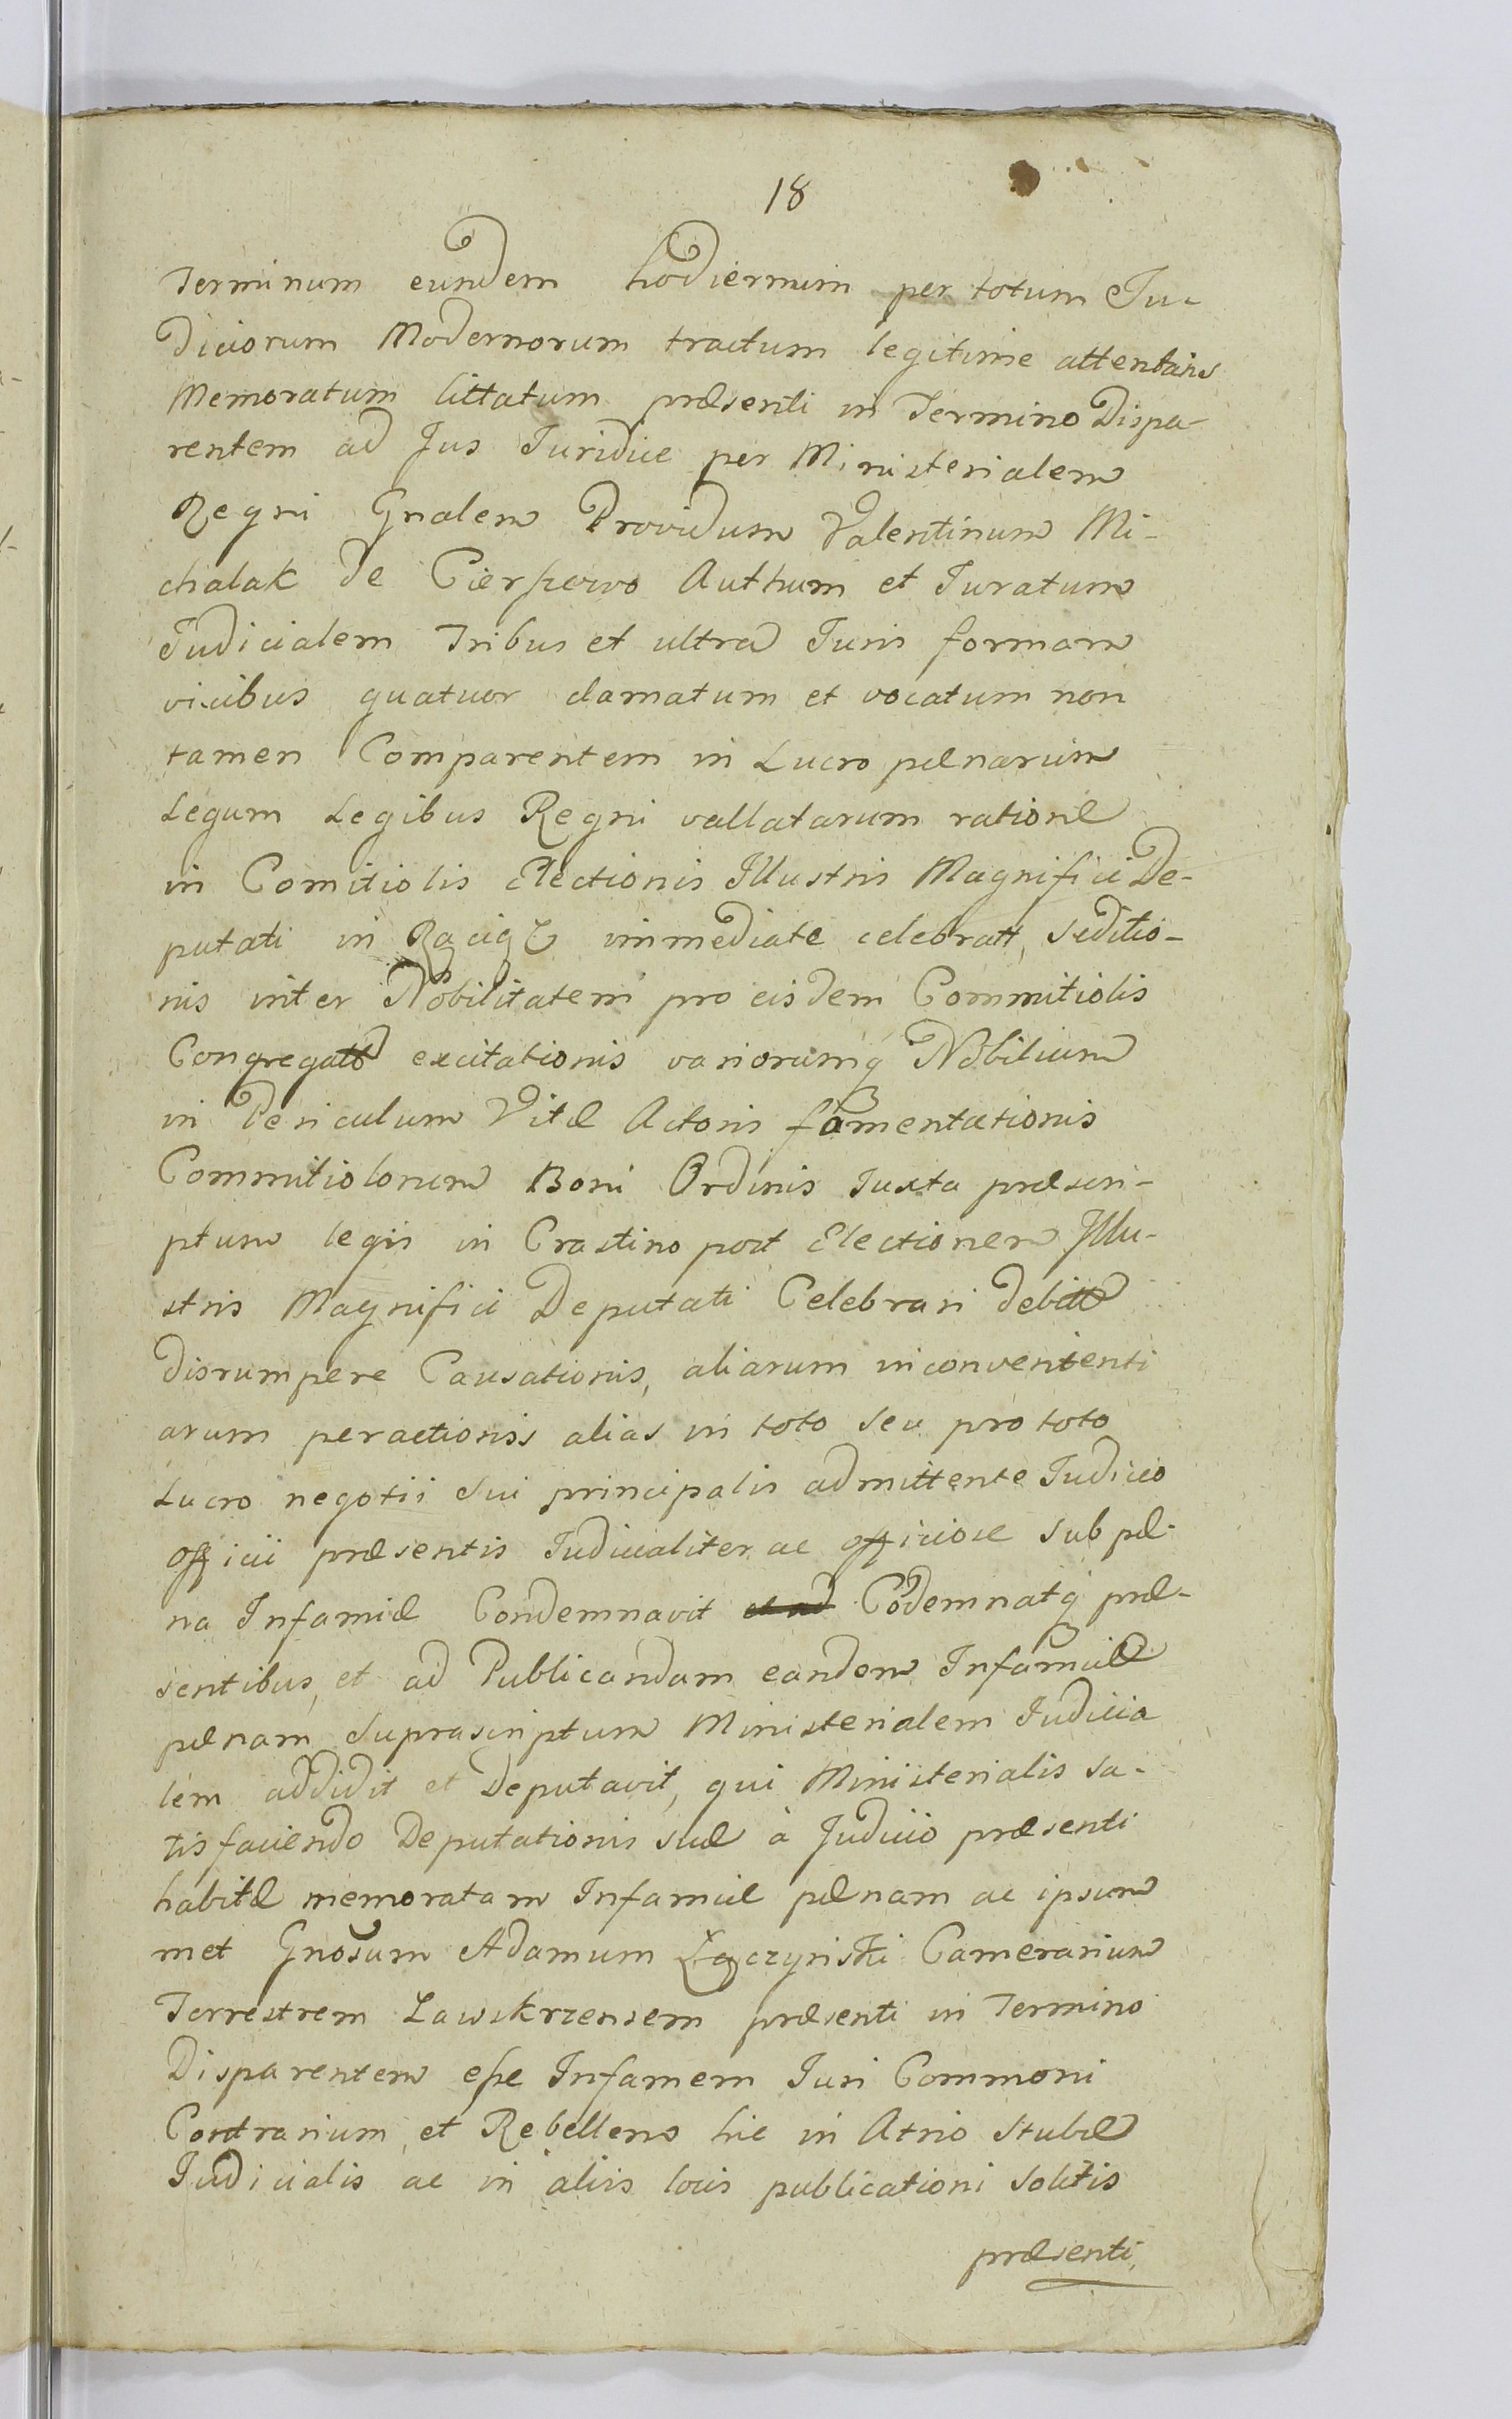 18
Terminum eundem hodiernum per totum Ju-
diciorum Modernorum tractum legitime attentans
Memoratum Cittatum præsenti in Termino Dispa-
rentem ad Jus Juridice per Ministerialem
Regni Gnalem Providum Valentinum Mi-
chalak de Cierpiewo Authum et Juratum
Judicialem Tribus et ultra Juris formam
vicibus quatuor clamatum et vocatum non
tamen Comparentem in Lucro pænarum
Legum Legibus Regni vallatarum ratione
in Comitiolis Electionis Illustris Magnifici De-
putati in Raciąż immediate celebratt, seditio-
nis inter Nobilitatem pro eisdem Commitiolis
Congregatt excitationis variorumq Nobilium
in Periculum Vitæ Actoris fomentationis
Commitiolorum Boni Ordinis Juxta præscri-
ptum legis in Crastino post Electionem Illu-
stris Magnifici Deputati Celebrari debitt
disrumpere Causationis, aliarum inconvenienti
arum peractionis alias in toto seu pro toto
Lucro negotii sui principalis admittente Judicio
officii præsentis Judicialiter ac officiose sub pæ-
na Infamiæ Condemnavit et ad Codemnatq præ-
sentibus, et ad Publicandam eandem Infamiæ
pænam suprascriptum Ministerialem Judicia
lem addidit et Deputavit, qui Ministerialis sa-
tisfaciendo Deputationis suæ à Judicio præsenti
habitæ memoratam Infamiæ pænam ac ipsum
met Gnosum Adamum Łączynski Camerarium
Terrestrem Zawskrzensem præsenti in Termino
Disparentem esse Infamem Juri Commoni
Contrarium, et Rebellem hic in Atrio Stubæ
Judicialis ac in aliis locis publicationi solitis
præsenti